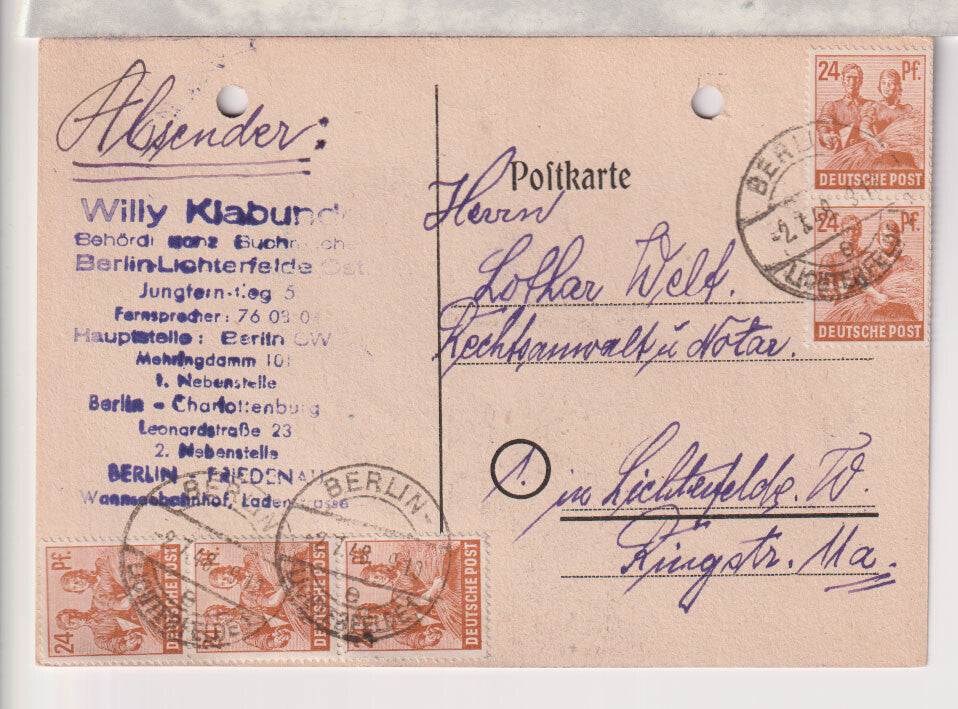 Absender:
Willy Klabund
Berlin-Lichterfelde Ost
5
Fernsprecher: 76 03 0
Hauptstelle: Berlin SW
Mehringdamm 101
1. Nebenstelle
Berlin - Charlottenburg
Leonardstraße 23
2. Nebenstelle
BERLIN - FRIEDENAU
Wannseebahnhof, Ladenstrasse
Postkarte
Herrn
Lothar Welt.
Rechtsanwalt u Notar.
1. in Lichterfelde. W.
Ringstr. 11a.
24 Pf.
DEUTSCHE POST
24 Pf.
DEUTSCHE POST
BERLIN
-2.7.48
e
LICHTERFELDE
24 Pf.
DEUTSCHE POST
DEUTSCHE POST
DEUTSCHE POST
BERLIN
-2.7.48
LICHTERFELDE 1
BERLIN-
-2.7.48
e
LICHTERFELDE 1